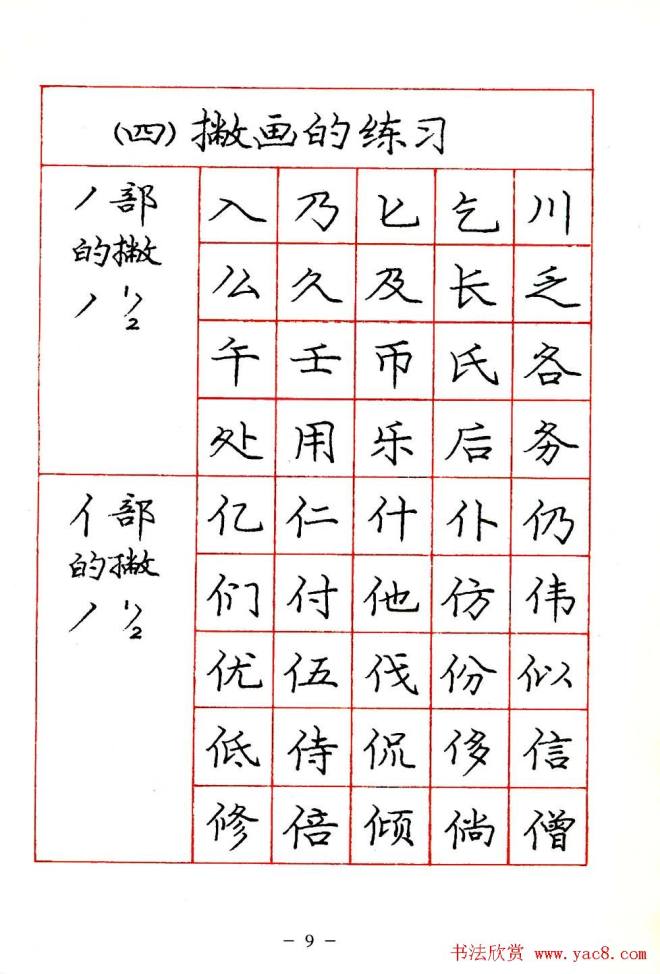 (四)撇画的练习
丿部
的撇
丿 1/2
入乃匕乞川
么久及长乏
午壬币氏各
处用乐后务
亻部
的撇
丿 1/2
亿仁什仆仍
们付他仿伟
优伍伐份似
低侍侃侈信
修倍倾倘僧
- 9 -
书法欣赏 www.yac8.com